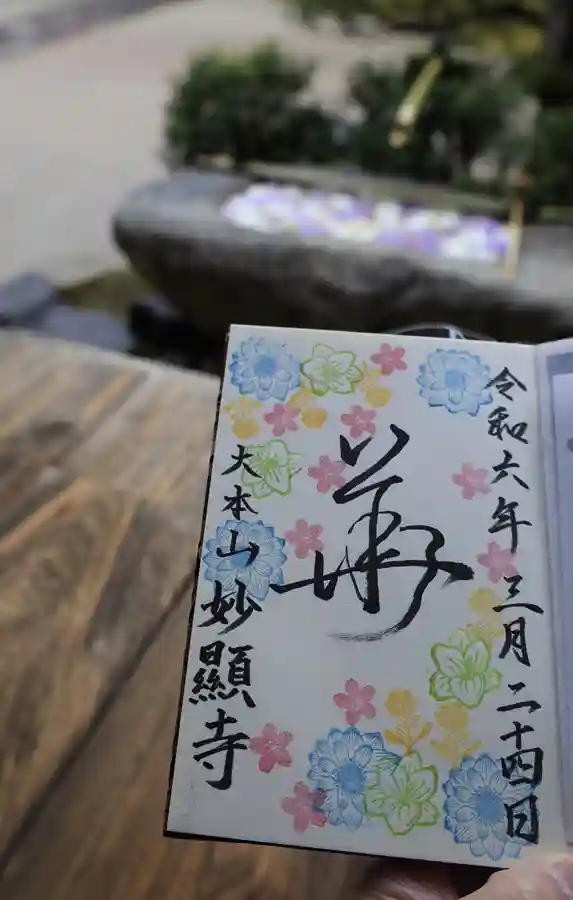 令和六年三月二十四日
大本山妙顯寺